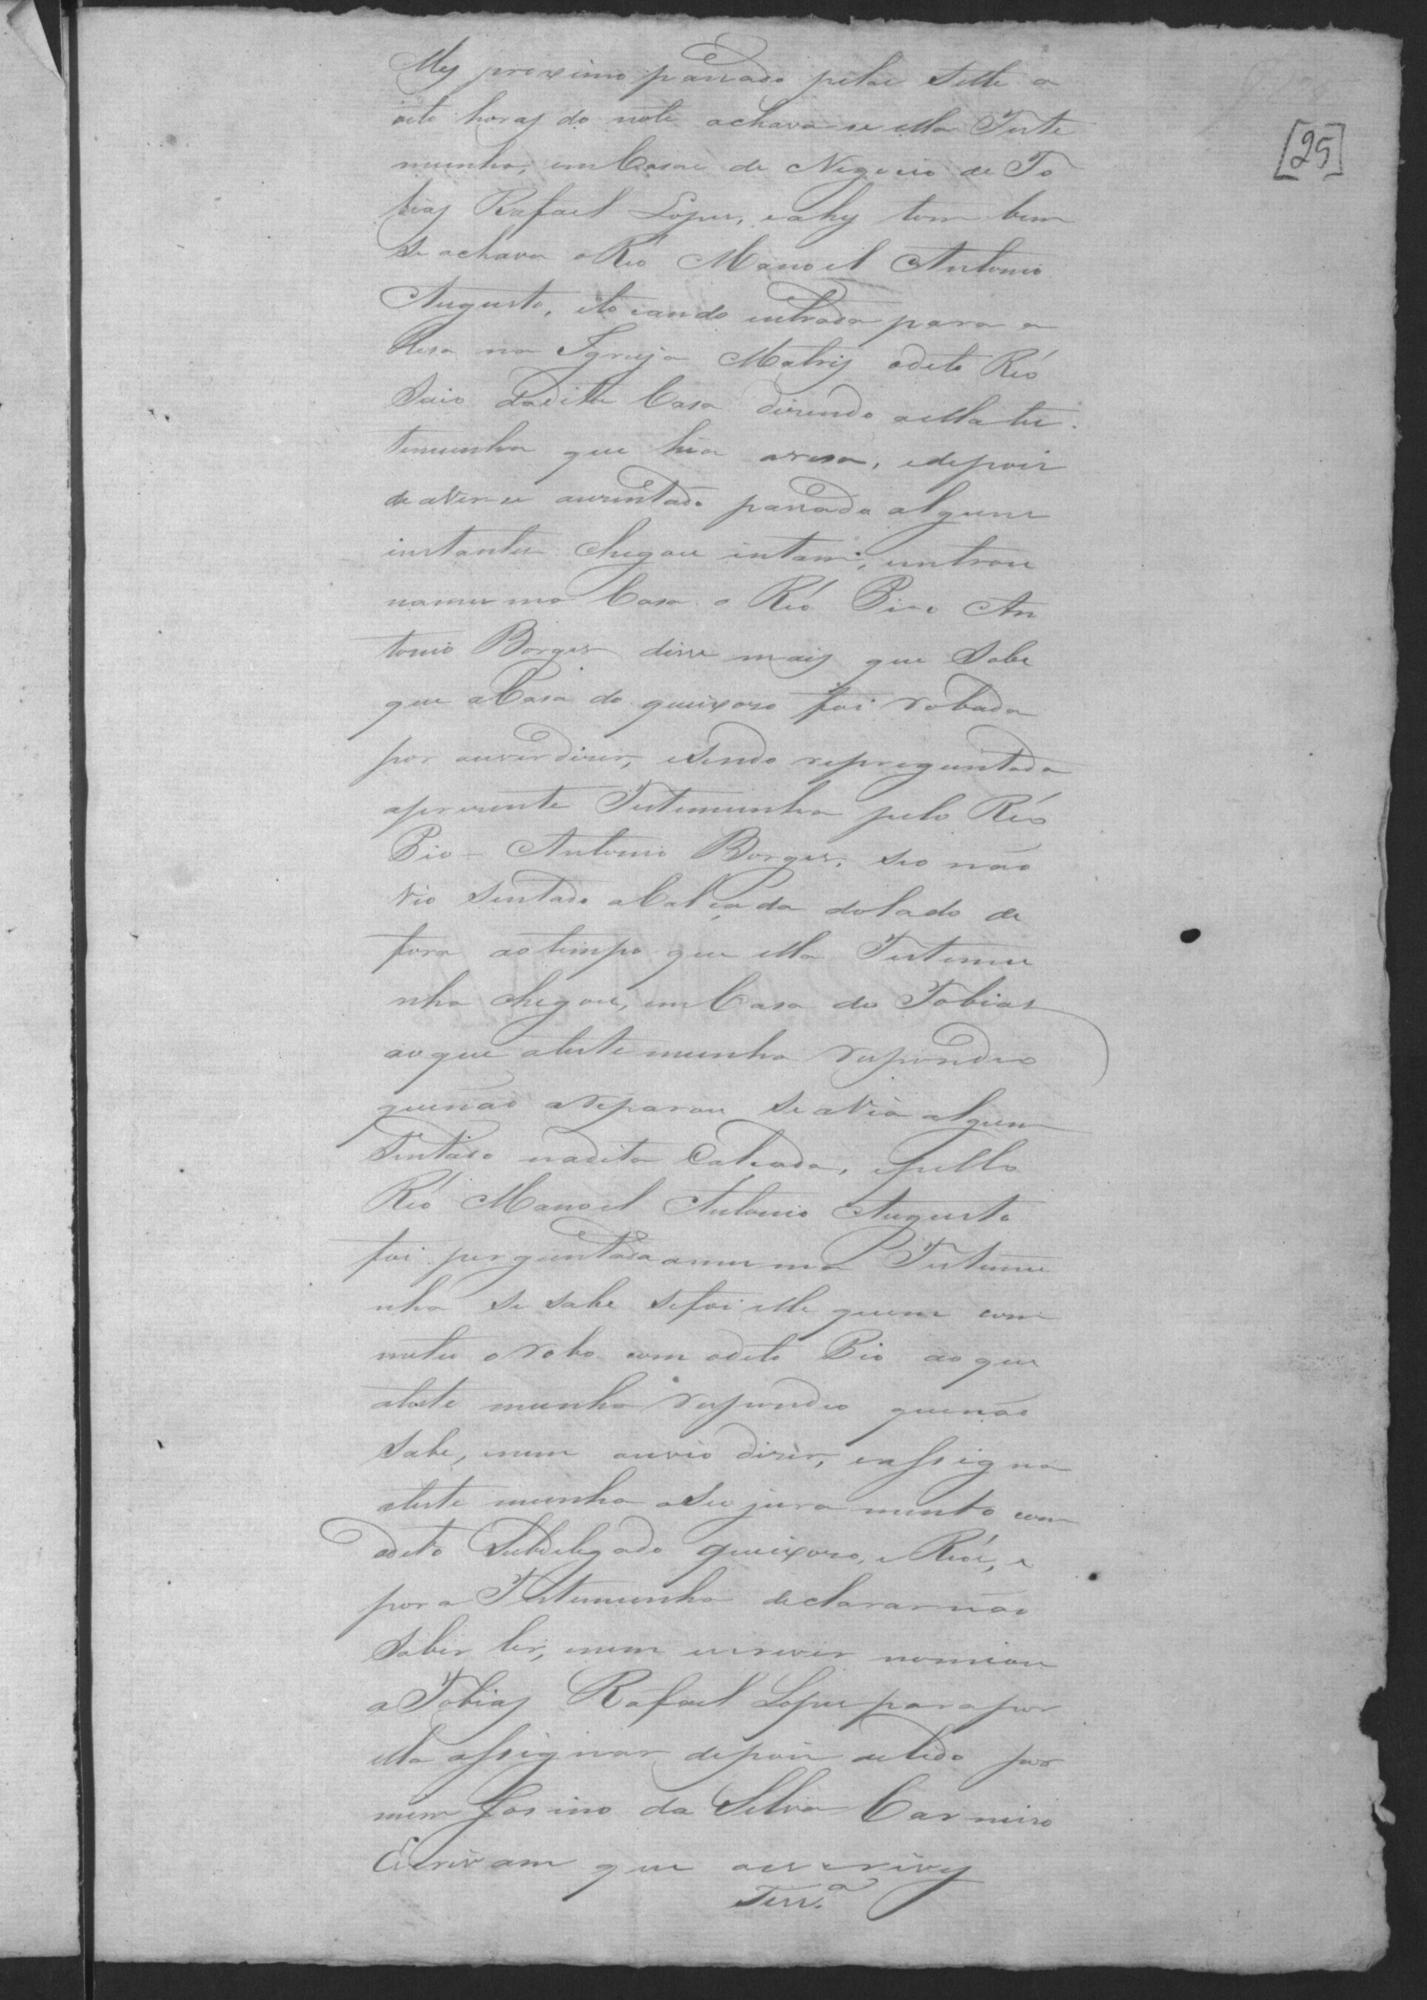 [25]
Mes proximo passado pelas Sette a
oito horas do noite achava-se ella Teste
munha, em Casa de Negocio de To
bias Rafael Lopes, e ahy tom bem
se achava o Reó Manoel Antonio
Augusto, e tocando entrada para a
Resa na Igreja Matris o dito Reó
Saio da ditta Casa disendo a ella tes
temunha que hia aresa, e depois
de aver-se aurentado passada alguns
instantes chegou intam, entrou
na mesma Casa o Reó Pio An
tonio Borges disse mais que Sabe
que a Casa do queixoso foi robada
por ouver diser, e Sendo repreguntada
apresente Testemunha pelo Reó
Pio Antonio Borges, se o não
vio Sentado a Calçada do lado de
fora ao tempo que ella Testemu
nha chegou, em Casa do Tobias
ao que a teste munha respondeo
que não areparou se avia alguem
Sentado na dita Calcada, e pello
Reó Manoel Antonio Augusto
foi perguntada amesma Testemu
nha se sabe se foi elle quem com
meteo o robo com o dito Pio ao que
a teste munha respondeo que não
Sabe, nem ouvio diser, e assigna
a teste munha o seu jura mento com
o dito Subdelegado queixoso, e Reós, e
por a Testemunha declarar não
Saber ler, nem escrever nomiou
a Tobias Rafael Lopes para por
ella assignar depois de lido por
mim Josino da Silva Carneiro
Escrivam que o escrivy